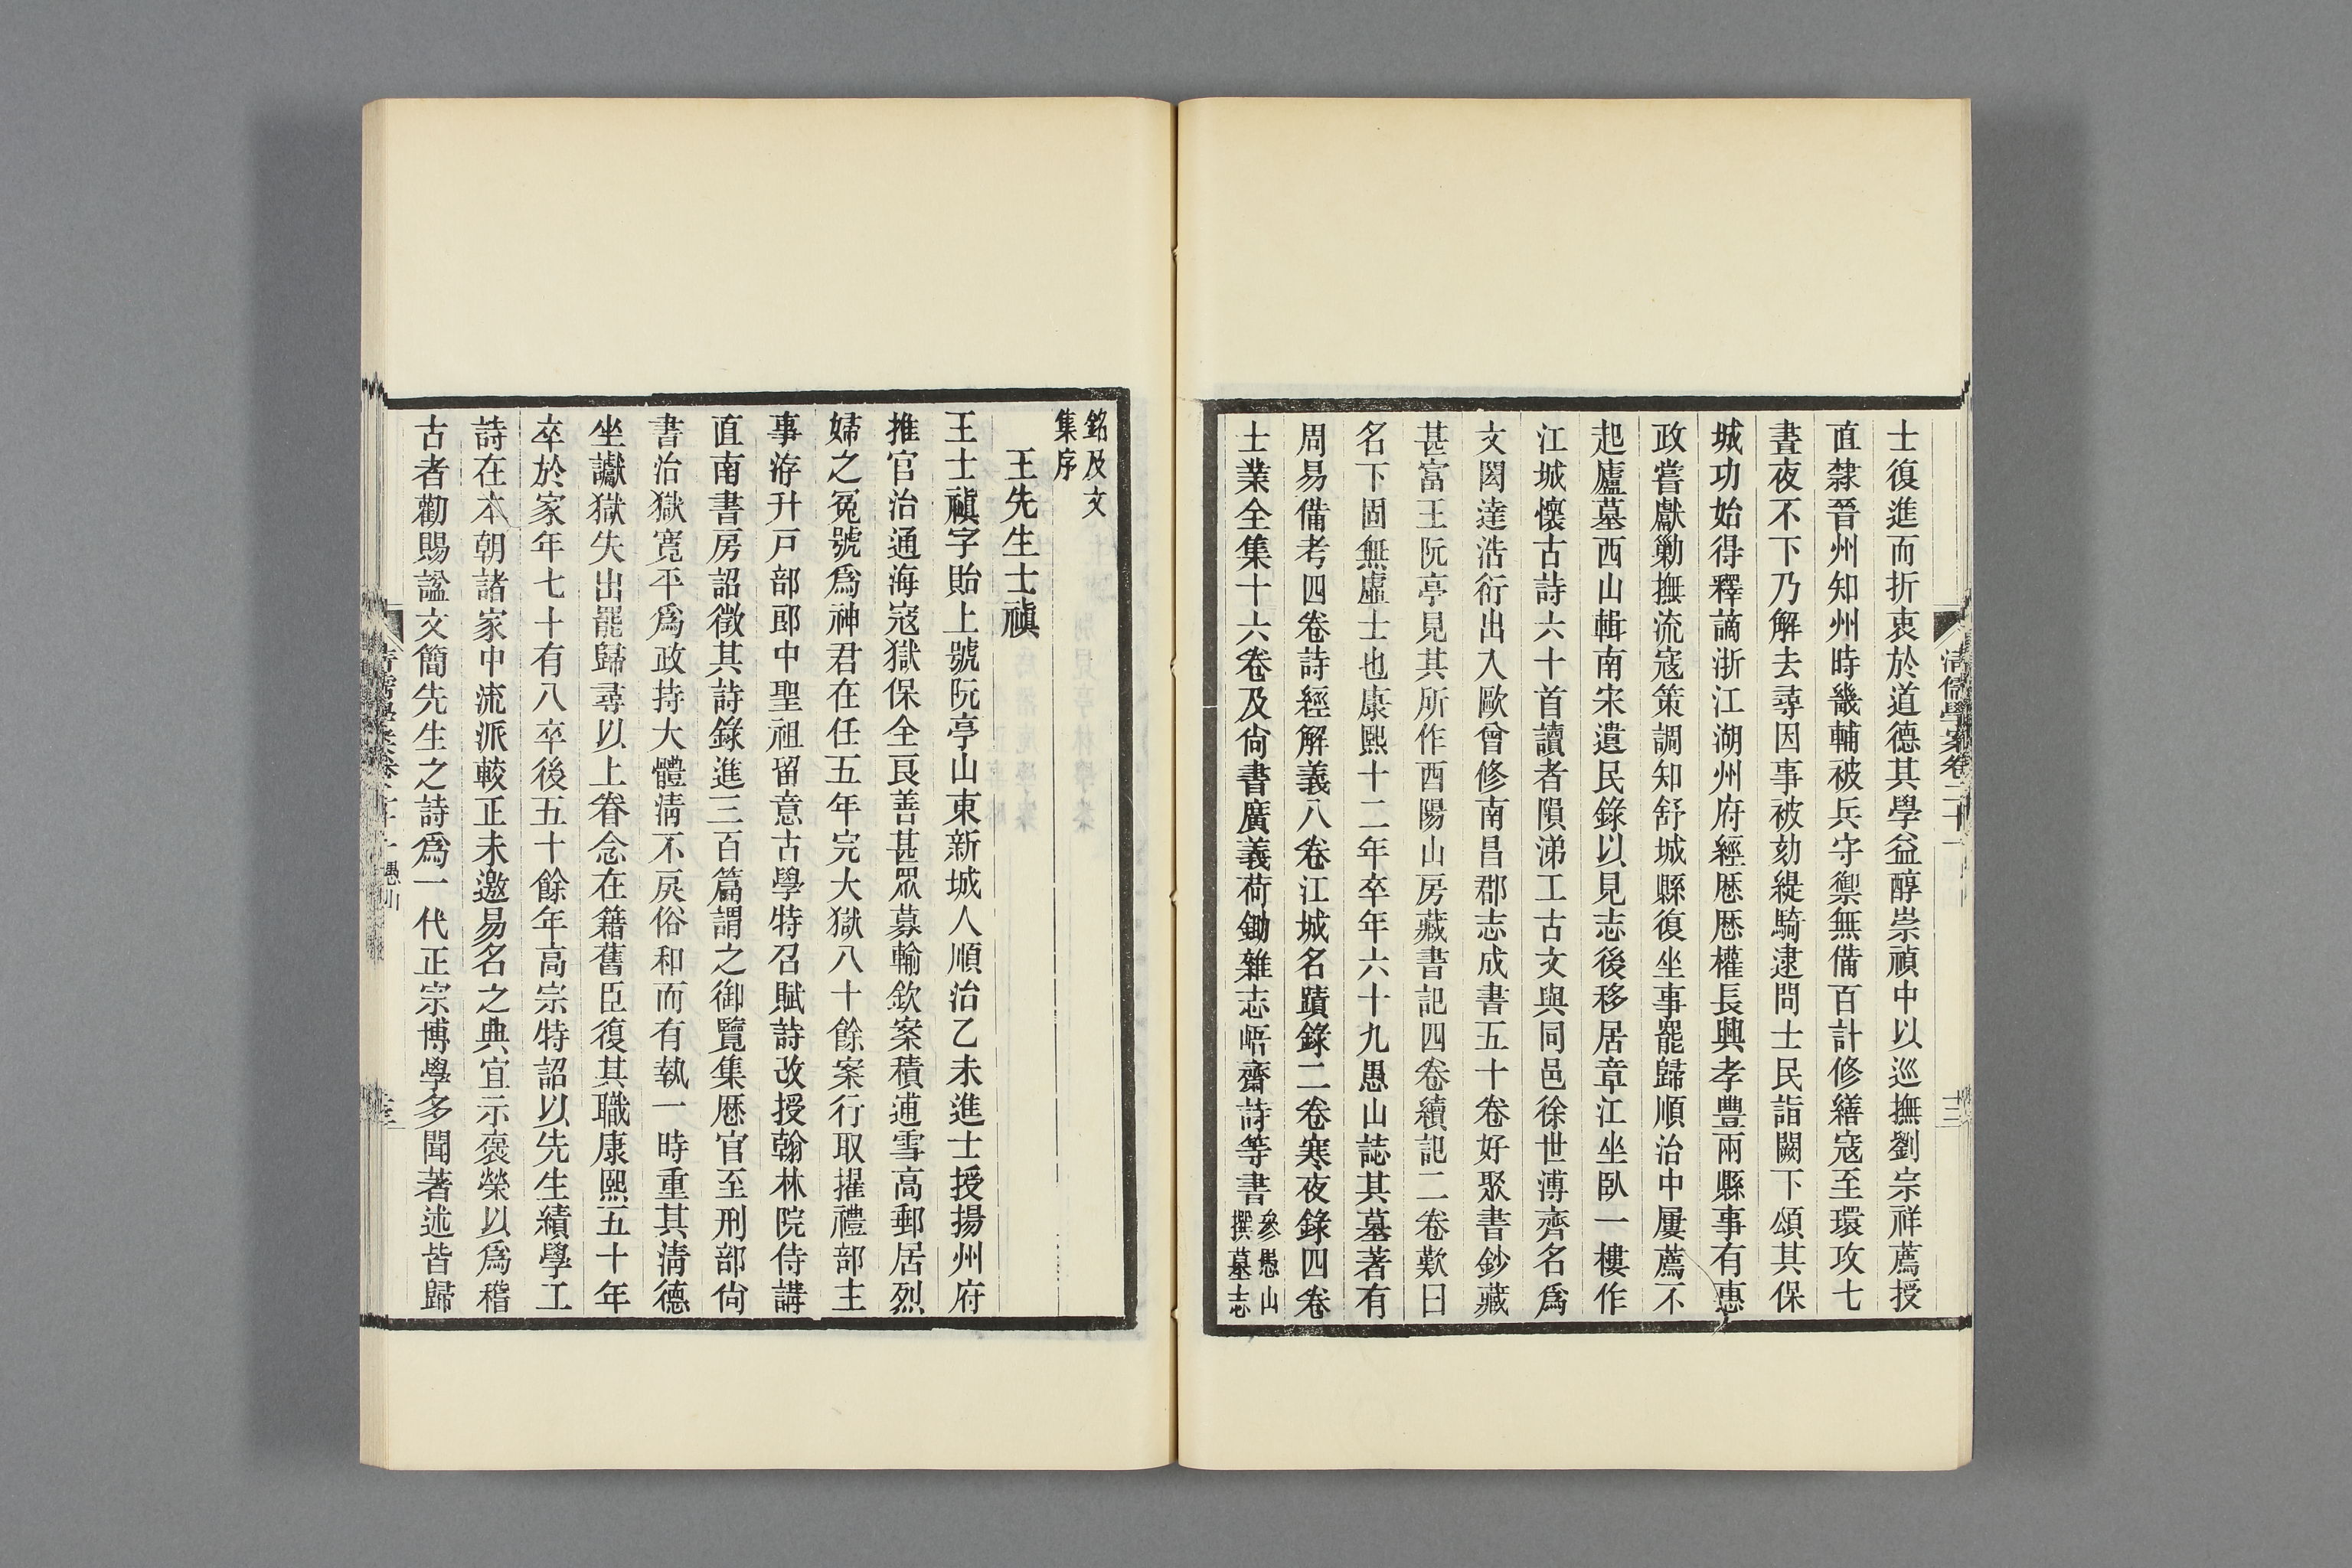 清儒學案卷二十一
十三
士復進而折衷於道德其學益醇崇禎中以巡撫劉宗祥薦授
直隸晉州知州時畿輔被兵守禦無備百計修繕寇至環攻七
晝夜不下乃解去尋因事被劾緹騎逮問士民詣闕下頌其保
城功始得釋謫浙江湖州府經歷歷權長興孝豐兩縣事有惠
政嘗獻勦撫流寇策調知舒城縣復坐事罷歸順治中屢薦不
起廬墓西山輯南宋遺民錄以見志後移居章江坐臥一樓作
江城懷古詩六十首讀者隕涕工古文與同邑徐世溥齊名爲
文閎達浩衍出入歐曾修南昌郡志成書五十卷好聚書鈔藏
甚富王阮亭見其所作酉陽山房藏書記四卷續記二卷歎曰
名下固無虛士也康熙十二年卒年六十九愚山誌其墓著有
周易備考四卷詩經解義八卷江城名蹟錄二卷寒夜錄四卷
士業全集十六卷及尙書廣義荷鋤雜志㟫齋詩等書參愚山
撰墓志
銘及文
集序
王先生士禛
王士禛字貽上號阮亭山東新城人順治乙未進士授揚州府
推官治通海寇獄保全良善甚眾募輸欽案積逋雪高郵居烈
婦之冤號爲神君在任五年完大獄八十餘案行取擢禮部主
事洊升戶部郎中聖祖留意古學特召賦詩改授翰林院侍講
直南書房詔徵其詩錄進三百篇謂之御覽集歷官至刑部尙
書治獄寬平爲政持大體淸不戾俗和而有執一時重其淸德
坐讞獄失出罷歸尋以上眷念在籍舊臣復其職康熙五十年
卒於家年七十有八卒後五十餘年高宗特詔以先生績學工
詩在本朝諸家中流派較正未邀易名之典宜示褒榮以爲稽
古者勸賜諡文簡先生之詩爲一代正宗博學多聞著述皆歸